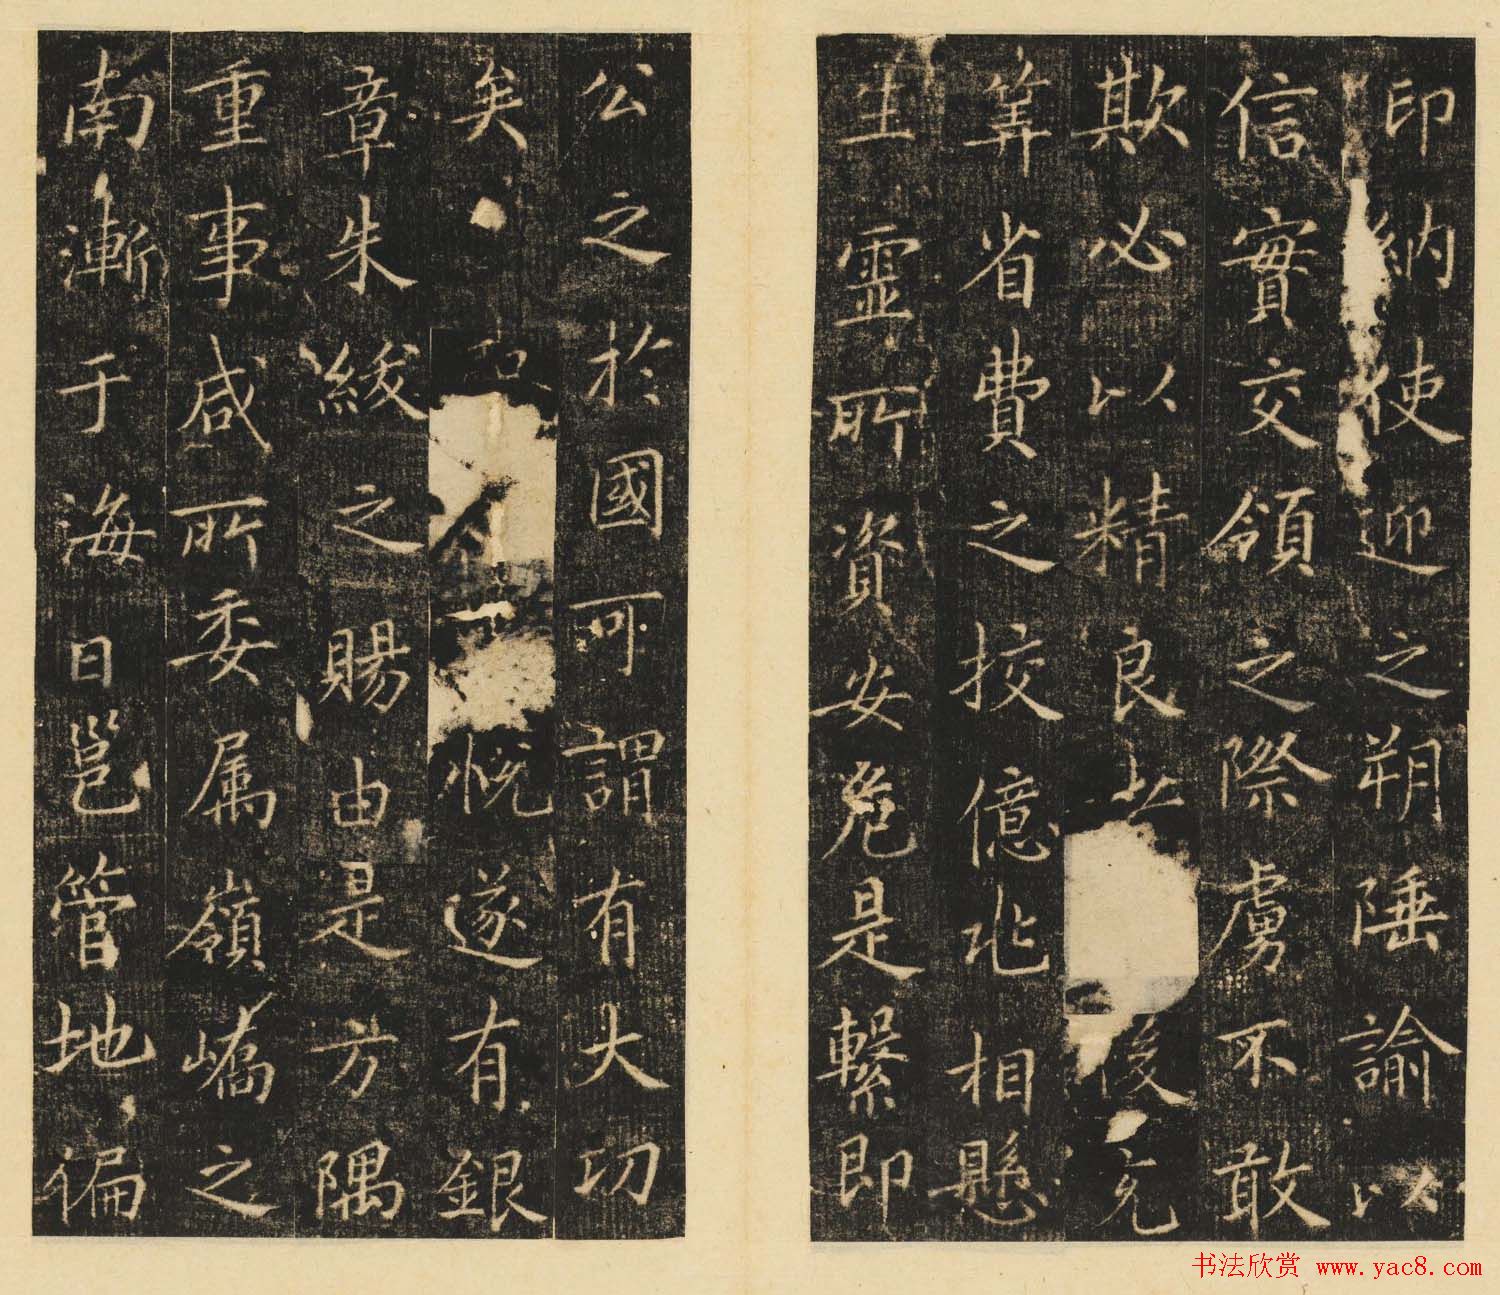 印納使迎之朔陲諭以
信實交領之際虜不敢
欺必以精良上後充
筭省費之挍億兆相懸
生靈所資安危是繫即
公之於國可謂有大功
矣慨遂有銀
章朱紱之賜由是方隅
重事咸所委属嶺嶠之
南漸于海日邕管地偏
书法欣赏 www.yac8.com